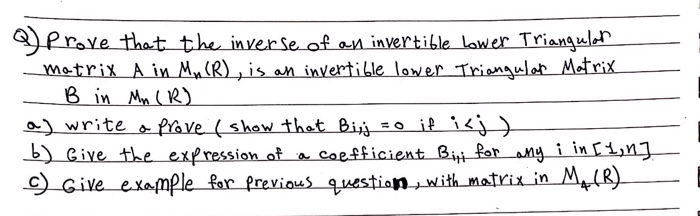 Q) Prove that the inverse of an invertible Lower Triangular
matrix A in Mn(R), is an invertible lower Triangular Matrix
B in Mn(R)
a) write a prove (show that Bi,j =0 if i<j)
b) Give the expression of a coefficient Bi,i for any i in [1,n]
c) Give example for previous question, with matrix in M4(R)